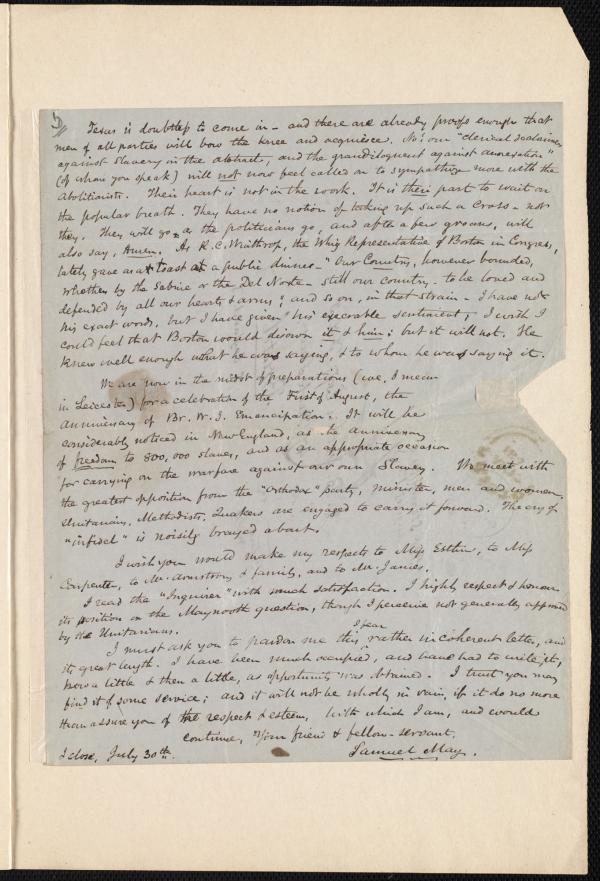 5
Texas is doubtless to come in - and there are already proofs enough that
men of all parties will bow the knee and acquiesce. No! our "clerical declaimers
against slavery in the abstract, and the grandiloquent against annexation"
(of whom you speak) will not now feel called on to sympathize more with the
abolitionists. Their heart is not in the work. It is their part to wait on
the popular breath. They have no notion of taking up such a cross - not
they. They will go as the politicians go, and after a few groans, will
also say, Amen. As R. C. Winthrop, the Whig Representative of Boston in Congress,
lately gave as a toast at a public dinner - "Our Country, however bounded,
whether by the Sabine or the Del Norte - still our country - to be loved and
defended by all our hearts & arms", and so on, in that strain - I have not
his exact words, but I have given his execrable sentiment; I wish I
could feel that Boston would disown it & him; but it will not. He
knew well enough what he was saying, & to whom he was saying it.
We are now in the midst of preparations (we, I mean
in Leicester) for a celebration of the First of August, the
anniversary of Br. W. I. Emancipation. It will be
considerably noticed in New England, as the anniversary
of freedom to 800,000 slaves, and as an appropriate occasion
for carrying on the warfare against our own Slavery. We meet with
the greatest opposition from the "Orthodox" party, minister, men and women.
Unitarians, Methodists, Quakers are engaged to carry it forward. The cry of
"infidel" is noisily brayed about.
I wish you would make my respects to Miss Estlin, to Miss
Carpenter, to Mr. Armstrong & family, and to Mr. James.
I read the "Inquirer" with much satisfaction. I highly respect & honour
its position on the Maynooth question, though I perceive not generally approved
by the Unitarians.
I must ask you to pardon me this I fear rather incoherent letter, and
its great length. I have been much occupied, and have had to write it,
now a little & then a little, as opportunity was obtained. I trust you may
find it of some service; and it will not be wholly in vain, if it do no more
than assure you of the respect & esteem, with which I am, and would
continue, Your friend & fellow-servant,
I close, July 30th. Samuel May.